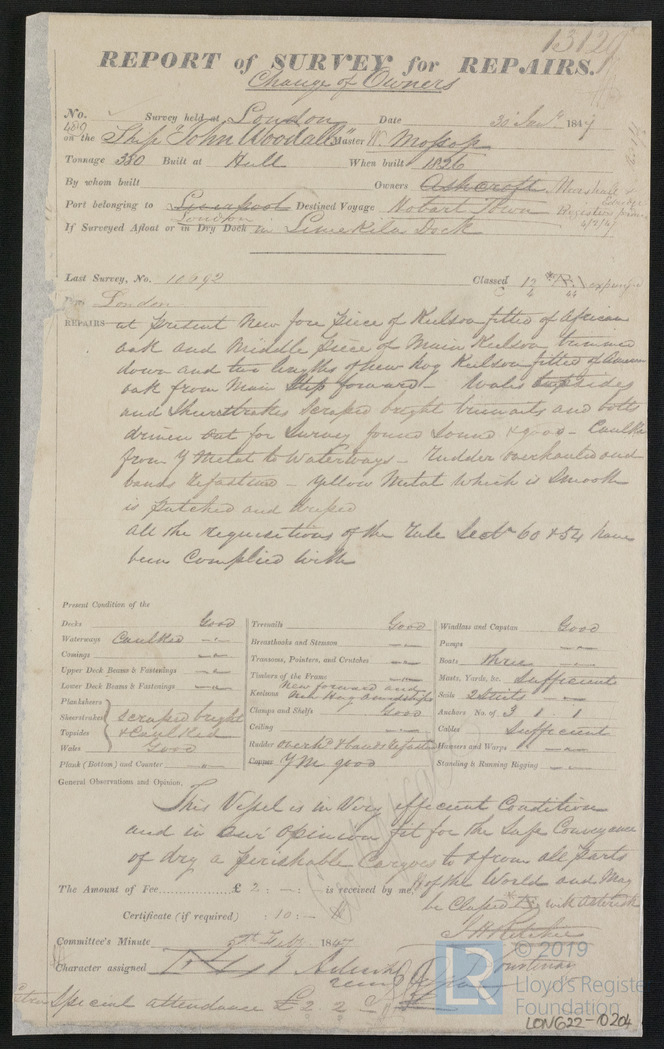 13129
REPORT of SURVEY for REPAIRS.
Change of Owners
No. 480 Survey held at London Date 30 Jany 1847
on the Ship "John Woodall" Master W. Mossop
Tonnage 350 Built at Hull When built 1836
By whom built Owners Ashcroft Marshall &
Port belonging to Liverpool Destined Voyage Hobart Town
London
If Surveyed Afloat or in Dry Dock in Limekiln Dock
Last Survey, No. 10592 Classed 12 expunged
Port London
REPAIRS at present New fore piece of Keelson fitted of African
oak and Middle piece of Main Keelson turned
down and two lengths of new hog Keelson fitted of
oak from Main Step forward - Wales topsides
and Sheerstrakes Scraped bright treenails and bolts
driven out for Survey found Sound & good - Caulked
from Y Metal to Waterways - Rudder overhauled and
bands refastened - Yellow Metal which is Smooth
is patched and
all the requisitions of the Rule Sectn 60 & 54 have
been Complied with
Present Condition of the
Decks Good
Waterways Caulked
Comings
Upper Deck Beams & Fastenings
Lower Deck Beams & Fastenings
Planksheers
Sheerstrakes scraped bright
Topsides & Caulked
Wales Good
Plank (Bottom) and Counter
Treenails Good
Breasthooks and Stemson
Transoms, Pointers, and Crutches
Timbers of the Frame
Keelsons New forward and
Clamps and Shelfs Good
Ceiling
Rudder overhd & bands refastd
Copper YM good
Windlass and Capstan Good
Pumps
Boats three
Masts, Yards, &c. Sufficient
Sails 2 Suits
Anchors No. of 3 1 1
Cables Sufficient
Hawsers and Warps
Standing & Running Rigging
General Observations and Opinion,
This Vessel is in Very efficient Condition
and in our Opinion fit for the Safe Conveyance
of dry & perishable Cargoes to & from all parts
of the World and May
The Amount of Fee £ 2 : - : - is received by me,
be Classed with asterisk
Certificate (if required) : 10 : -
Committee's Minute 9th Feby 1847
Character assigned
Special attendance £2 2
© 2019
LR
Lloyd's Register
Foundation
LON622-0204